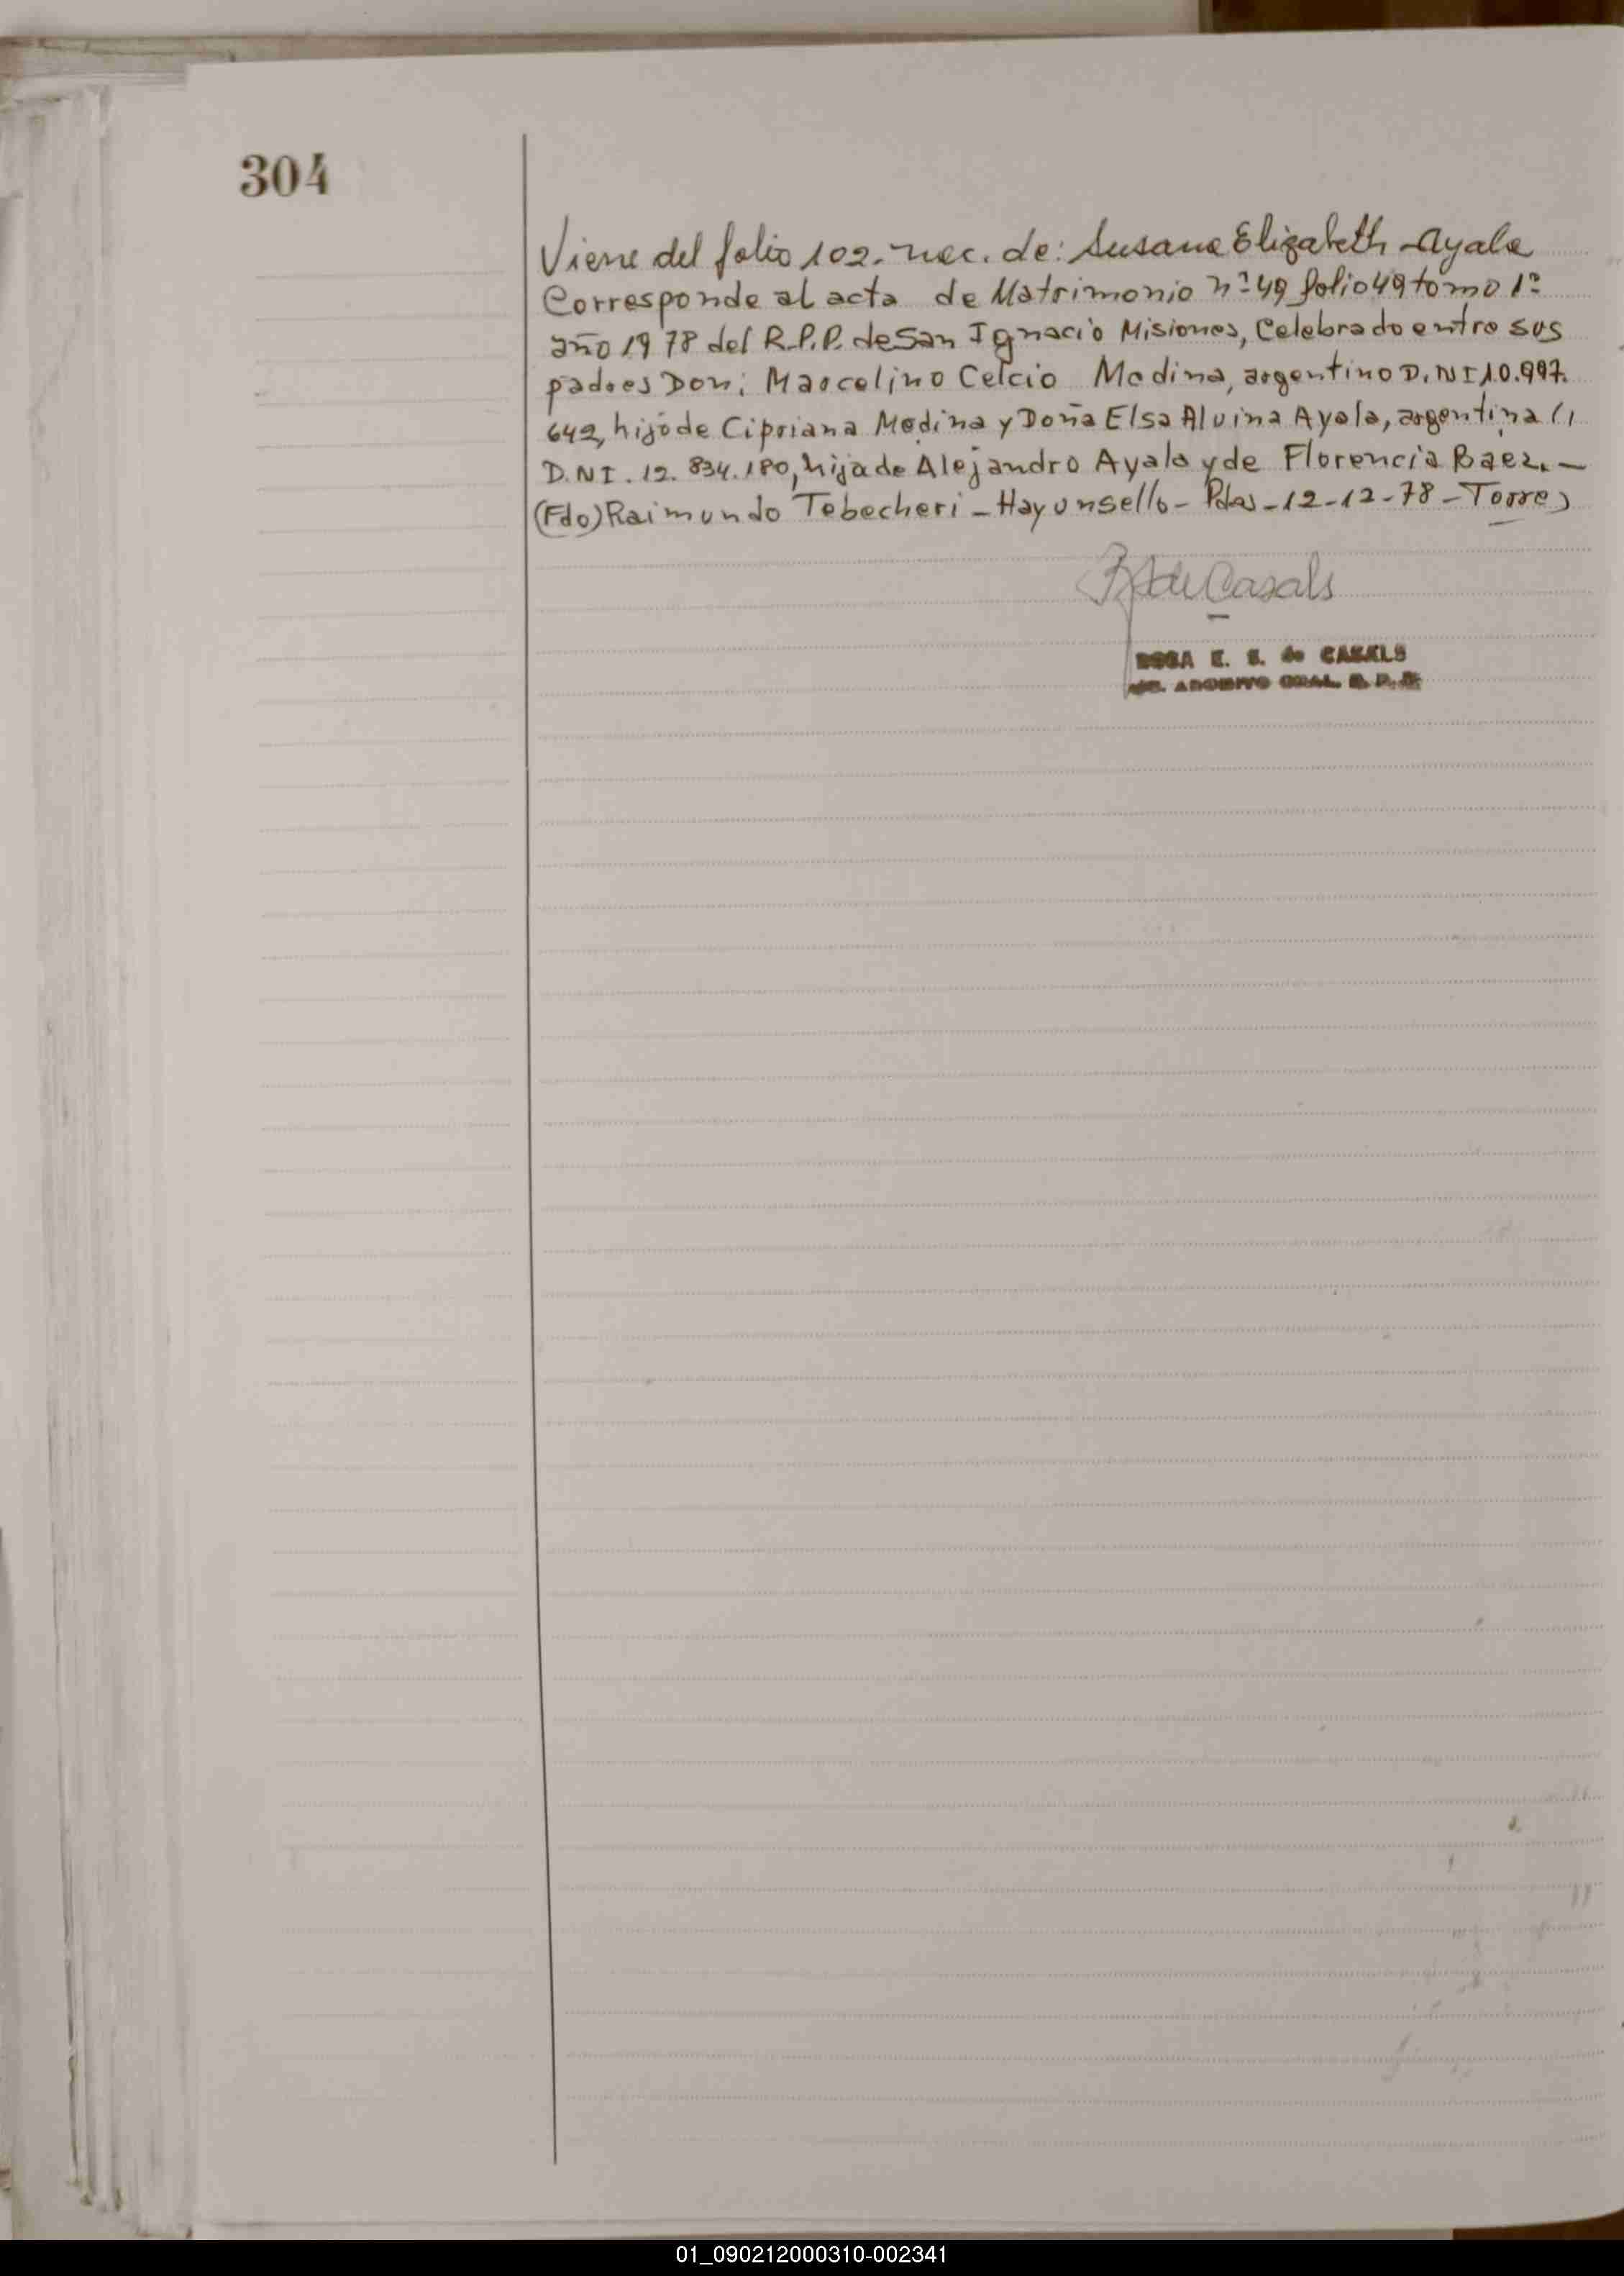 304
Viene del folio 102. nac. de: Susana Elizabeth Ayala
Corresponde al acta de Matrimonio nº 49 folio 49 tomo 1º
año 1978 del R.P.P. de San Ignacio Misiones, Celebrado entre sus
padres Don: Marcelino Celcio Medina, argentino D.NI 10.997.
642, hijo de Cipriana Medina y Doña Elsa Alvina Ayala, argentina (,
D.NI. 12.834.180, hija de Alejandro Ayala y de Florencia Baez. —
(Fdo) Raimundo Tebecheri - Hay un sello - Pdas - 12-12-78 - Torres
de Casals
ROSA E. S. de CASALS
GRAL. R. P.
01_090212000310-002341